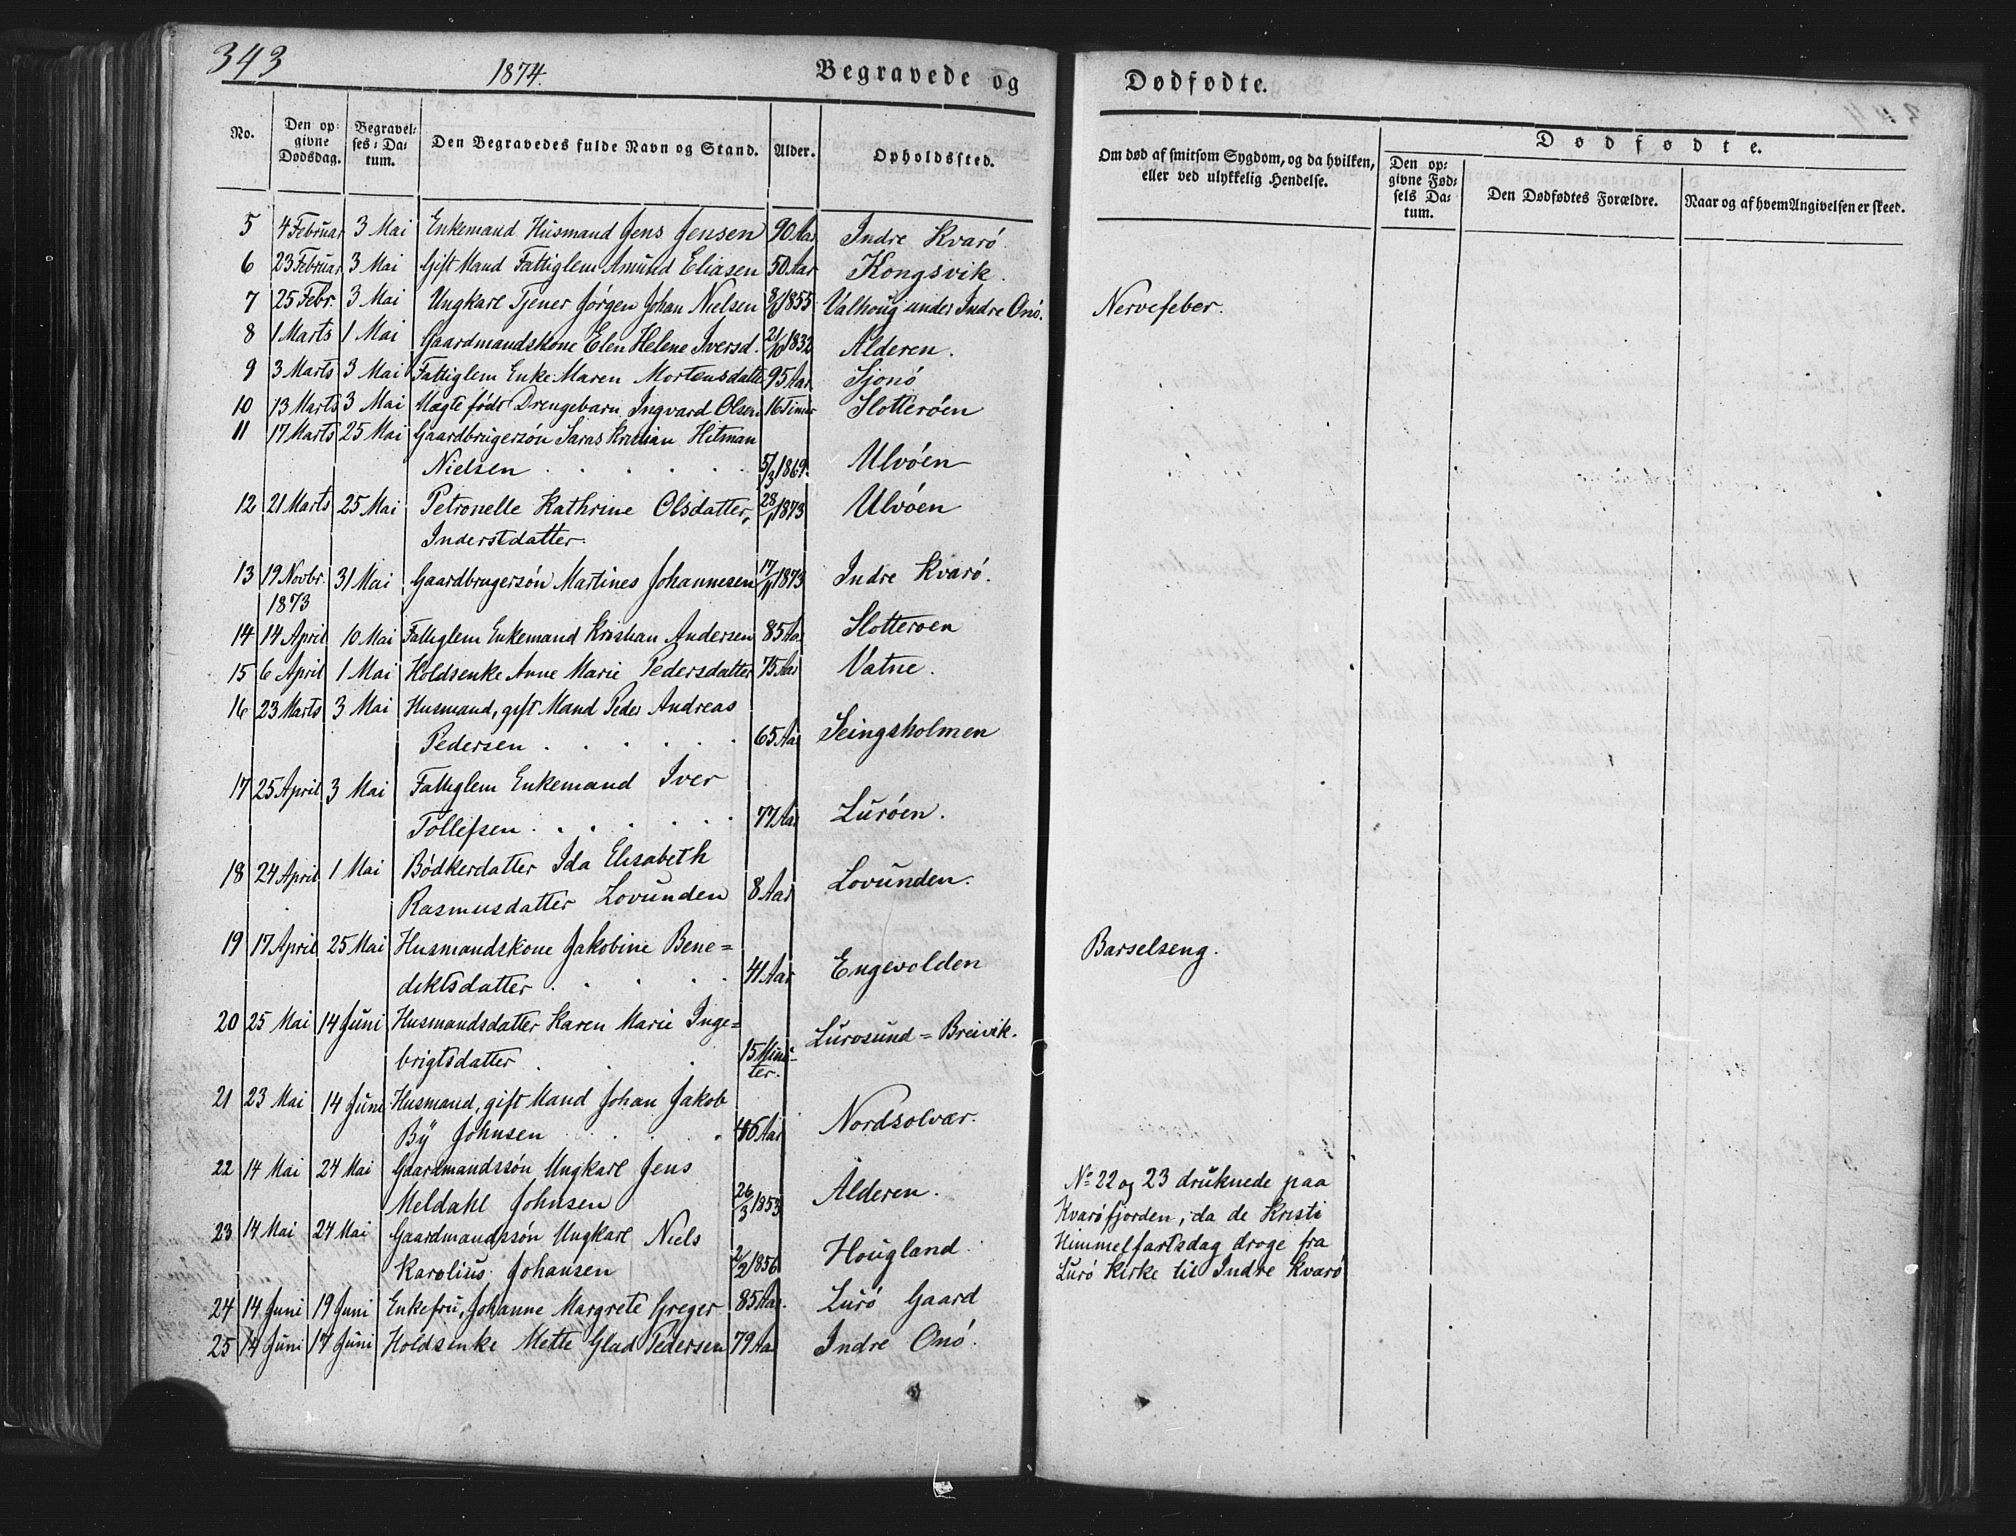 343
1874.
Begravede og
Dødfødte.
No.
Den op=
givne
Dødsdag.
Begravel=
ses=Da=
tum.
Den Begravedes fulde Navn og Stand.
Alder.
Opholdssted.
Om død af smitsom Sygdom, og da hvilken,
eller ved ulykkelig Hendelse.
Dødfødte.
Den op=
givne Fød=
sels Da=
tum.
Den Dødfødtes Forældre.
Naar og af hvem Angivelsen er skeet.
5 4 Februar 3 Mai Enkemand Husmand Jens Jensen 90 Aar Indre Kvarö.
6 23 Februar 3 Mai Gift Mand Fattiglem Amund Eliasen 50 Aar Kongsvik.
7 25 Febr. 3 Mai Ungkarl Tjener Jörgen Johan Nielsen 8/6 1855 Valhoug under Indre Onö. Nervefeber.
8 1 Marts 1 Mai Gaardmandskone Elen Helene Iversd. 21/10 1832 Alderen.
9 3 Marts 3 Mai Fattiglem Enke Maren Mortensdatte 95 Aar Sjonö
10 13 Marts 3 Mai Ægte født Drengebarn Ingvard Olsen 16 Timer Slotteröen
11 17 Marts 25 Mai Gaardbrugersön Saras Kristian Hitman
Nielsen . . . . . 5/3 1869. Ulvöen
12 21 Marts 25 Mai Petronelle Kathrine Olsdatter, 28/1 1873 Ulvöen
Inderstdatter.
13 19 Novbr. 31 Mai Gaardbrugersön Martines Johannesen 17/11 1873 Indre Kvarö.
1873
14 14 April 10 Mai Fattiglem Enkemand Kristian Andersen 85 Aar Slotteroen
15 6 April 1 Mai Holdsenke Anne Marie Pedersdatter 75 Aar Vatne.
16 23 Marts 3 Mai Husmand, gift Mand Peder Andreas
Pedersen . . . . . 65 Aar Seingsholmen
17 25 April 3 Mai Fattiglem Enkemand Iver
Tollefsen . . . . . 77 Aar Luröen.
18 24 April 1 Mai Bödkerdatter Ida Elisabeth
Rasmusdatter Lovunden 8 Aar Lovunden.
19 17 April 25 Mai Husmandskone Jakobine Bene=
diktsdatter . . . . 41 Aar Engevolden Barselseng.
20 25 Mai 14 Juni Husmandsdatter Karen Marie Inge=
brigtsdatter . . . 15 Minu-
ter. Lurosund = Breivik.
21 23 Mai 14 Juni Husmand, gift Mand Johan Jakob
Bÿ Johnsen . . . . 46 Aar Nordsolvær.
22 14 Mai 24 Mai Gaardmandssön Ungkarl Jens
Meldahl Johnsen 26/3 1853 Alderen.
23 14 Mai 24 Mai Gaardmandssön Ungkarl Niels
Karolius Johansen 2/2 1856 Hougland.
No 22 og 23 druknede paa
Kvaröfjorden, da de Kristi
Himmelfartsdag droge fra
Lurö Kirke til Indre Kvarö
24 14 Juni 19 Juni Enkefru, Johanne Margrete Greger 85 Aar. Lurö Gaard
25 14 Juni 17 Juni Holdsenke Mette Glad Pedersen 79 Aar Indre Onö.